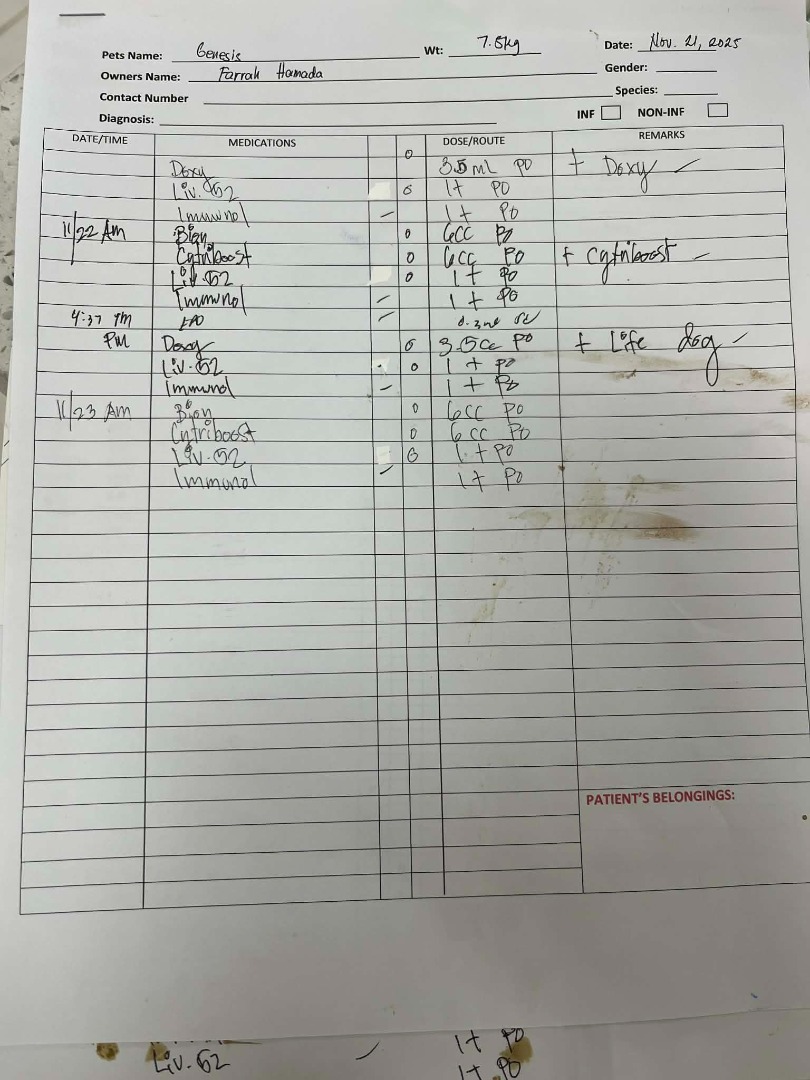 Pets Name: Genesis Wt: 7.5kg Date: Nov. 21, 2025
Owners Name: Farrah Hamada Gender:
Contact Number Species:
Diagnosis: INF NON-INF
DATE/TIME MEDICATIONS DOSE/ROUTE REMARKS
Doxy 0 3.5 ml PO + Doxy ✓
Liv. 52 0 1 t PO
Immunol – 1 t PO
11/22 Am 0 6cc PO
Cytriboost 0 6cc PO + Cytriboost
Liv. 52 0 1 t PO
Immunol – 1 t PO
4:37 PM EPO – 0.3ml SC
PM Doxy 0 3.5cc PO + Life dog ✓
Liv. 52 0 1 t PO
Immunol – 1 t PO
11/23 Am 0 6cc PO
Cytriboost 0 6cc PO
Liv. 52 0 1 t PO
Immunol – 1 t PO
PATIENT'S BELONGINGS:
1 t PO
Liv. 52 1 t PO